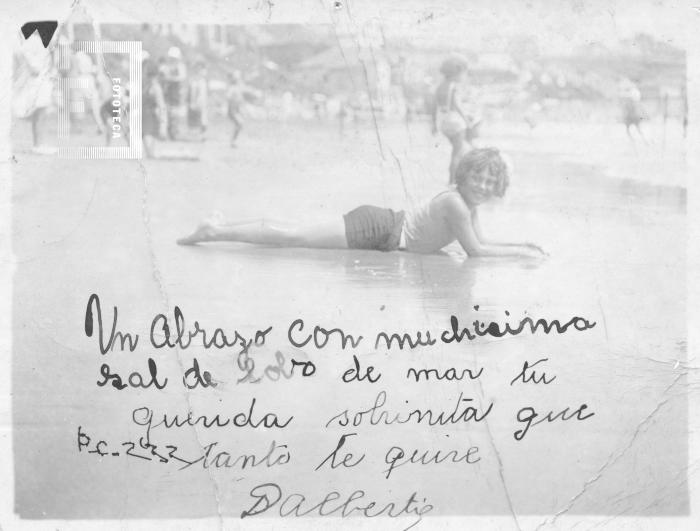 FOTOTECA
Un Abrazo con muchisima
sal de Lobo de mar tu
querida sobrinita que
tanto te quire
Dalbertis